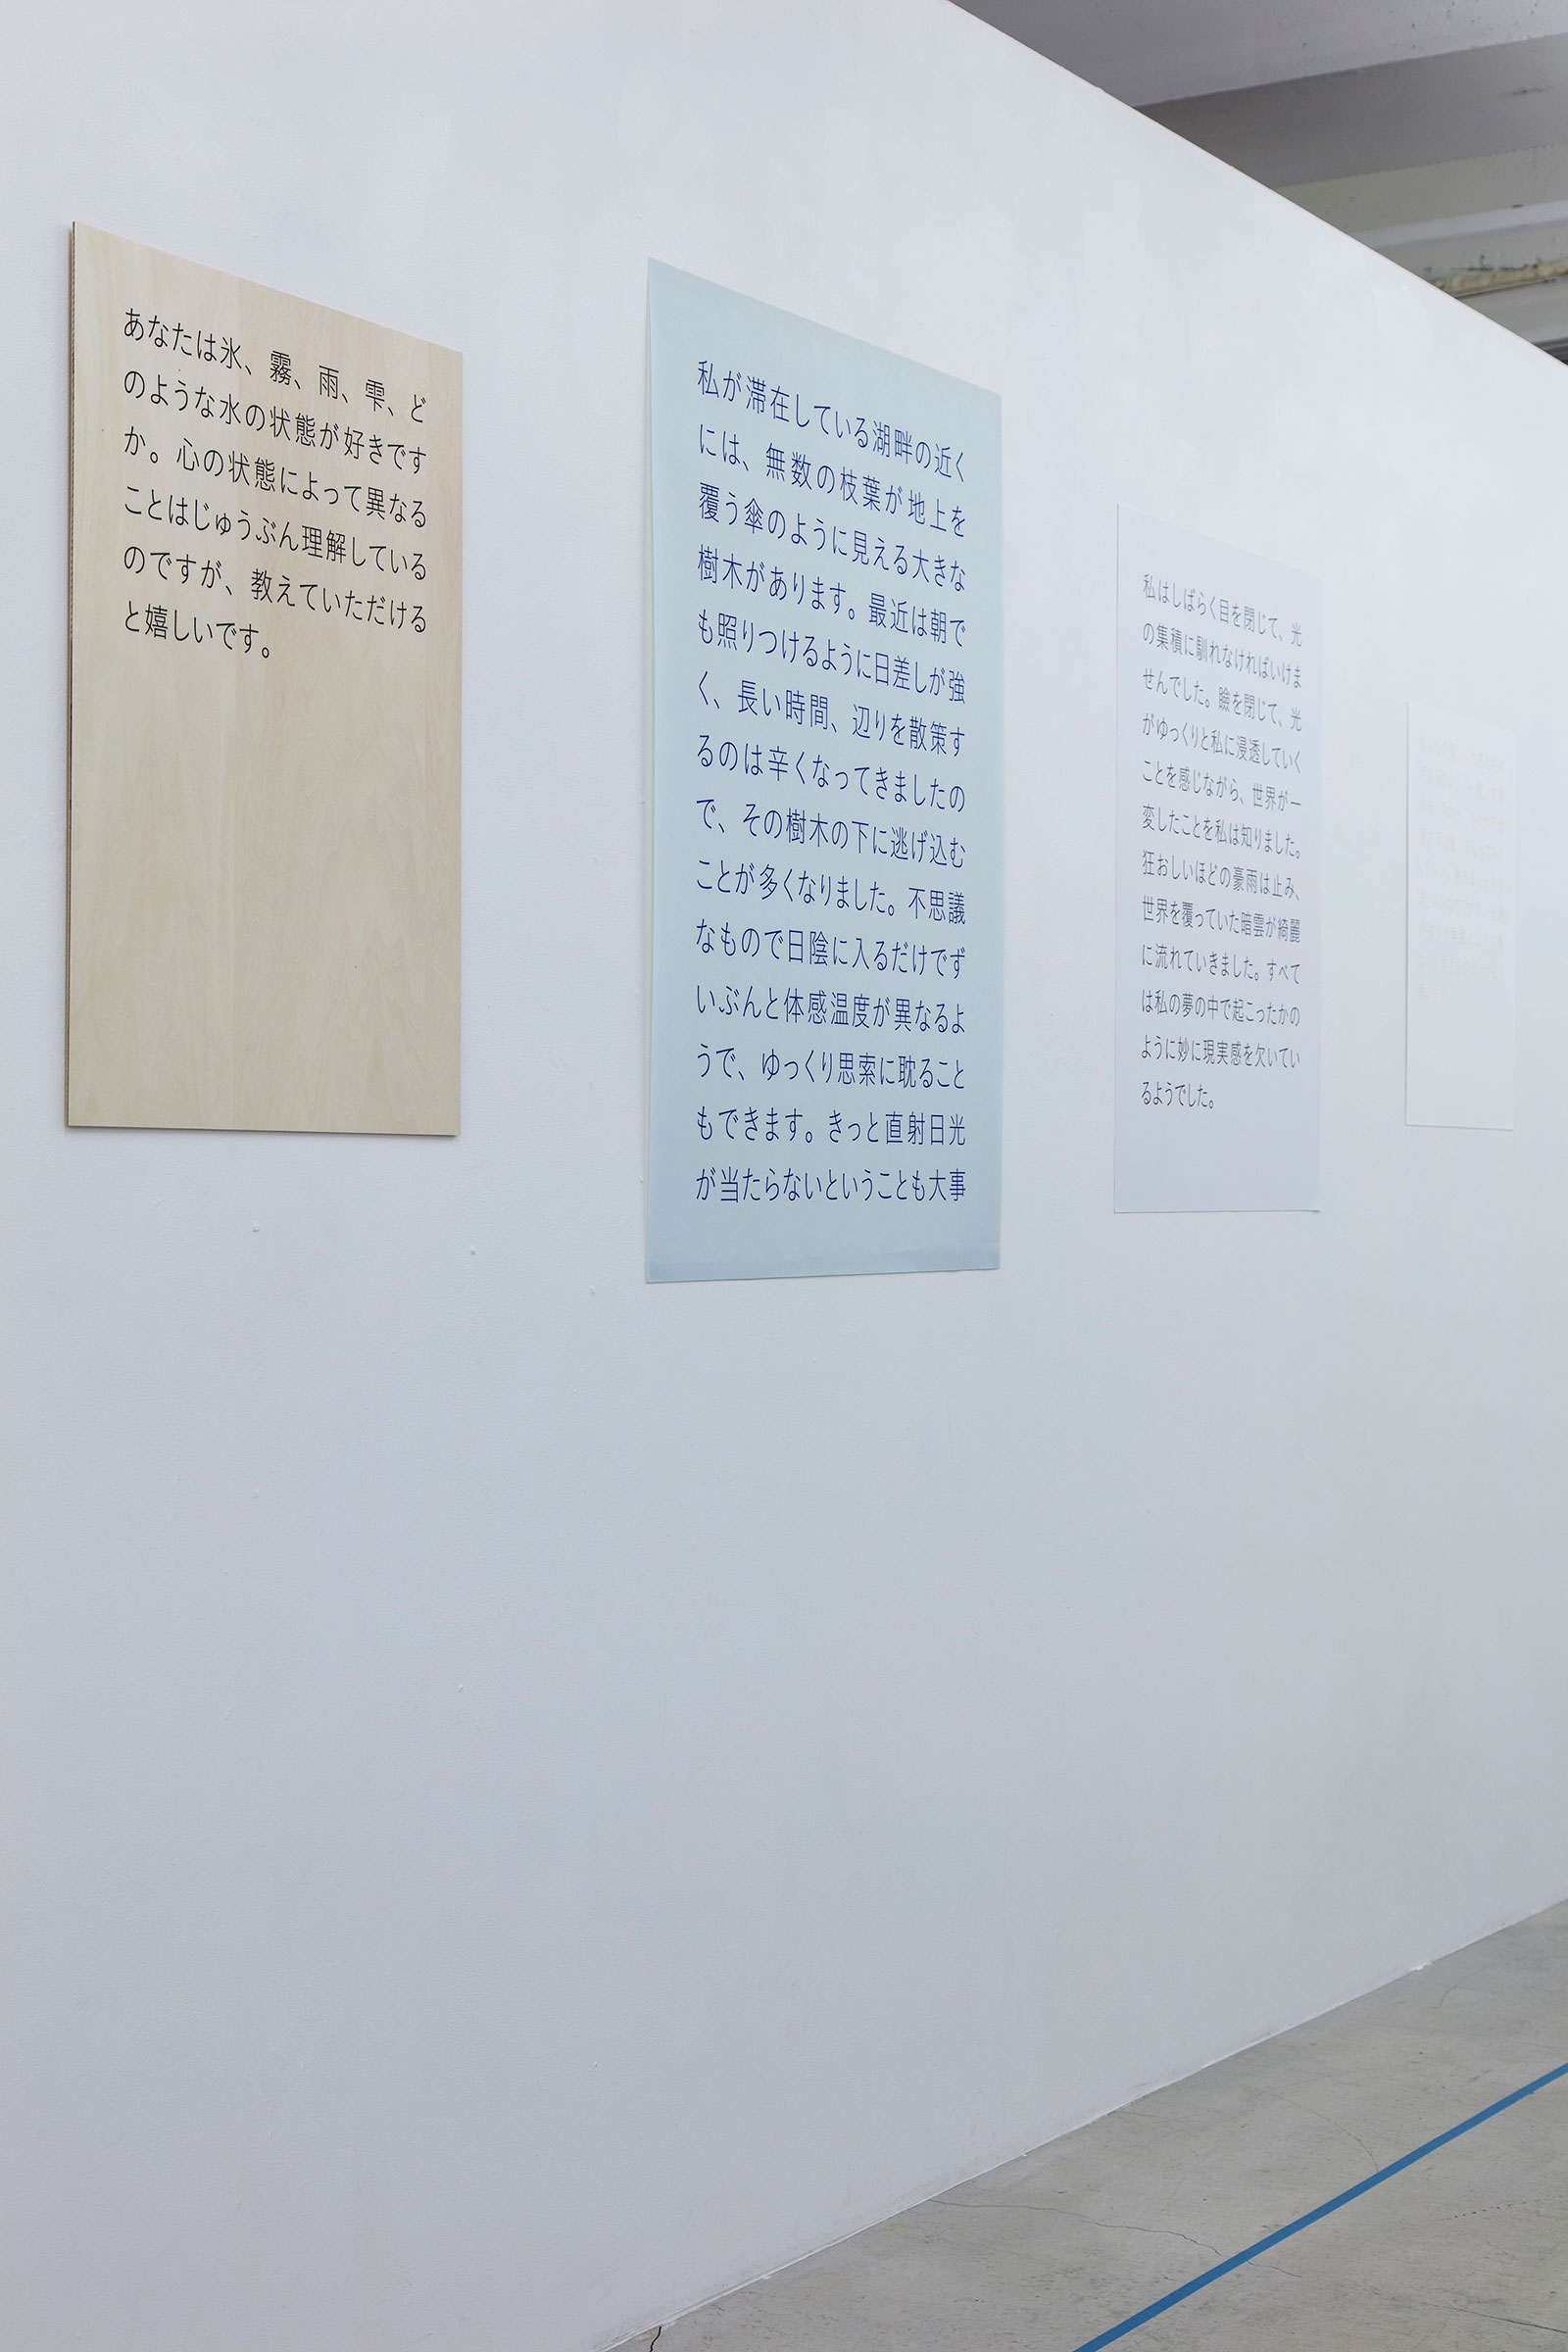 あなたは氷、霧、雨、雫、ど
のような水の状態が好きです
か。心の状態によって異なる
ことはじゅうぶん理解している
のですが、教えていただける
と嬉しいです。
私が滞在している湖畔の近く
には、無数の枝葉が地上を
覆う傘のように見える大きな
樹木があります。最近は朝で
も照りつけるように日差しが強
く、長い時間、辺りを散策す
るのは辛くなってきましたの
で、その樹木の下に逃げ込む
ことが多くなりました。不思議
なもので日陰に入るだけでず
いぶんと体感温度が異なるよ
うで、ゆっくり思索に耽ること
もできます。きっと直射日光
が当たらないということも大事
私はしばらく目を閉じて、光
の集積に馴れなければいけま
せんでした。瞼を閉じて、光
がゆっくりと私に浸透していく
ことを感じながら、世界が一
変したことを私は知りました。
狂おしいほどの豪雨は止み、
世界を覆っていた暗雲が綺麗
に流れていきました。すべて
は私の夢の中で起こったかの
ように妙に現実感を欠いてい
るようでした。